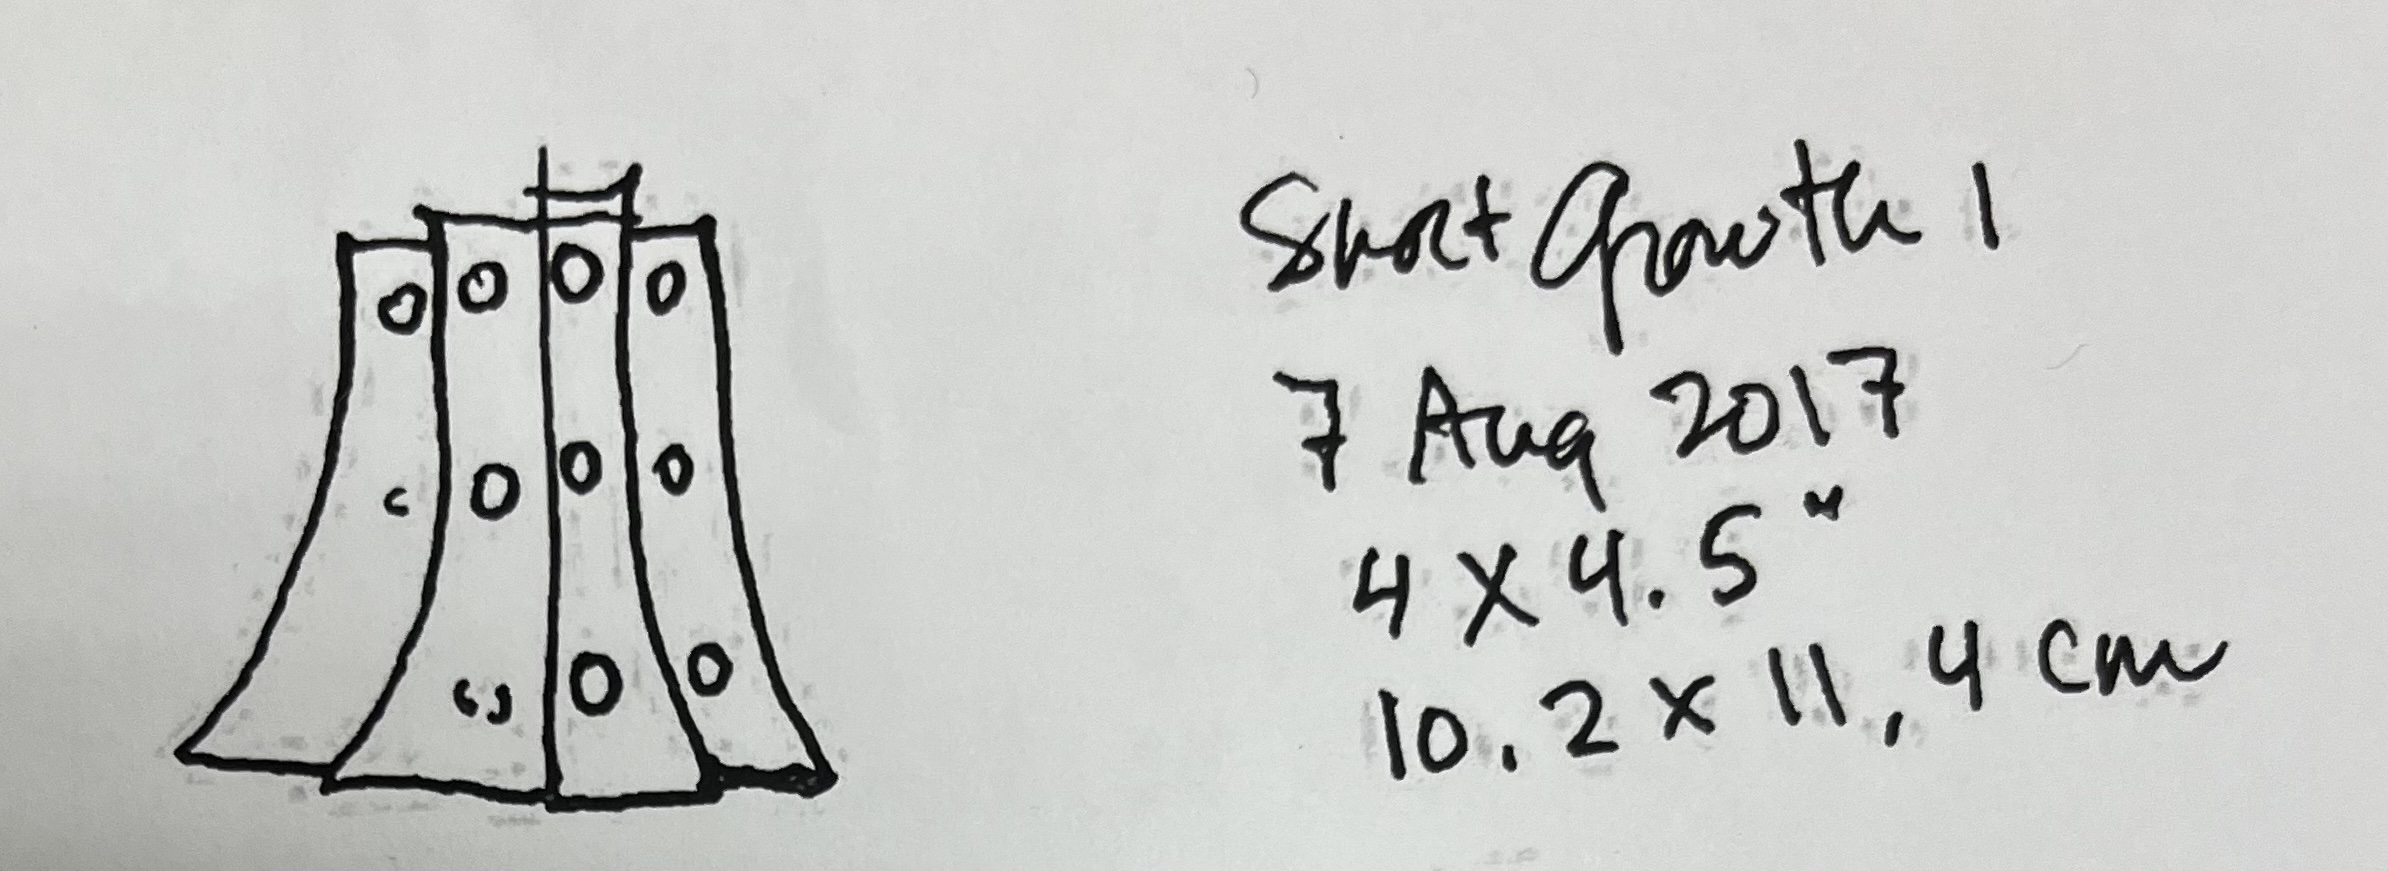 Short Growth 1
7 Aug 2017
4 x 4.5"
10.2 x 11.4 cm